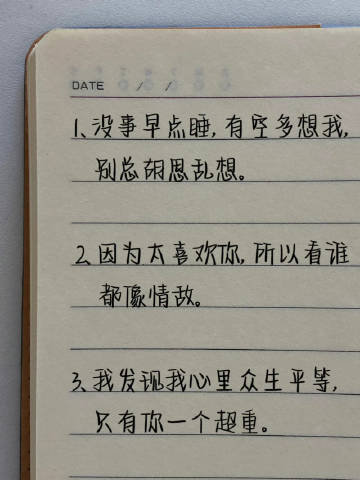 DATE / /
1、没事早点睡,有空多想我,
别总胡思乱想。
2、因为太喜欢你,所以看谁
都像情敌。
3、我发现我心里众生平等,
只有你一个超重。